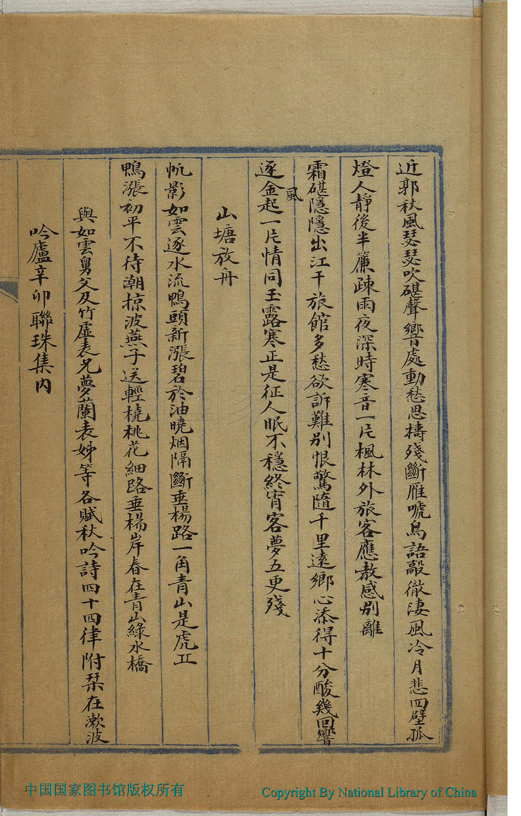 近郭秋風瑟瑟吹碪聲響處動愁思擣殘斷雁嘹烏語敲徹淒風冷月悲四壁孤
燈人靜後半簾疎雨夜深時寒音一片楓林外旅客應教感別離
霜碪隱隱出江干旅館多愁欲訴難別恨驚隨千里遠鄉心添得十分酸幾回響
逐金風起一片情同玉露寒正是征人眠不穩終宵客夢五更殘
山塘放舟
帆影如雲逐水流鴨頭新漲碧於油曉烟隔斷垂楊路一角青山是虎丘
鴨漲初平不待潮掠波燕子送輕橈桃花細路垂楊岸春在青山綠水橋
與如雲舅父及竹廬表兄夢蘭表姊等各賦秋吟詩四十四律附栞在漱波
吟廬辛卯聯珠集內
中国国家图书馆版权所有
Copyright By National Library of China